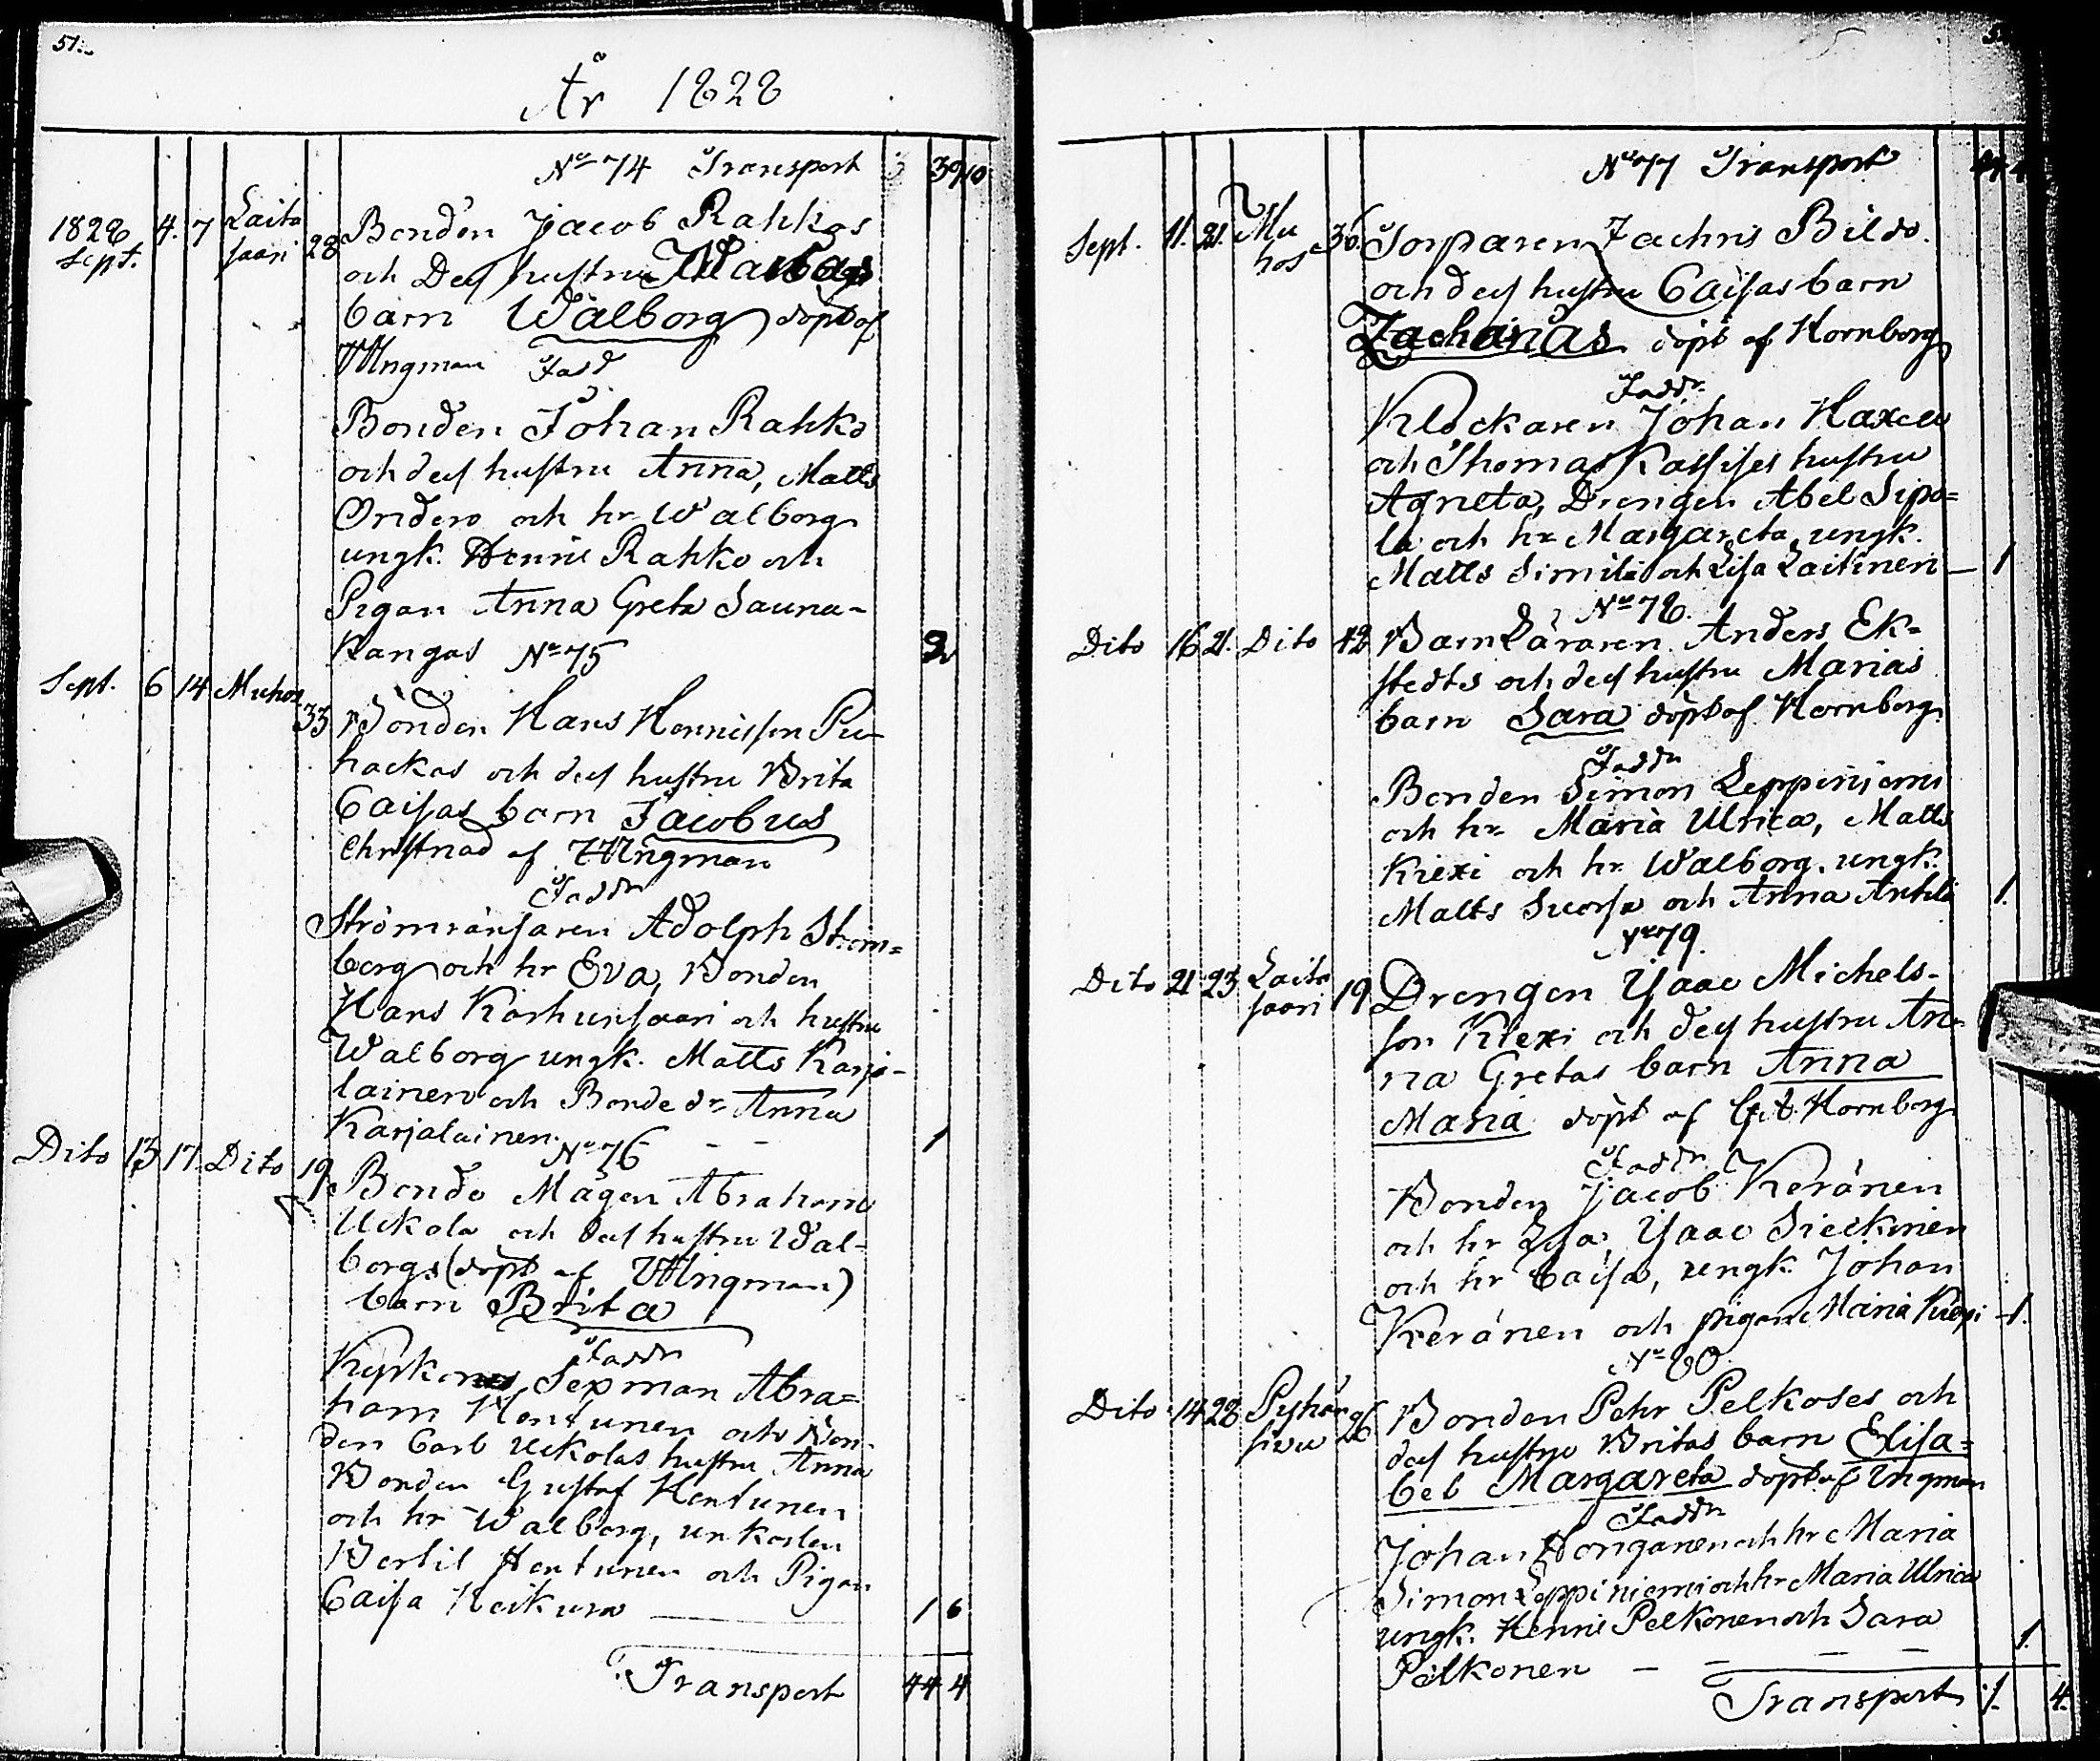 51.
År 1828
No 74 Transport 39 10
1828 Sept. 4. 7 Laitasaari 28 Bonden Jacob Rahkos
och Dess hustru Walborgs
barn Walborg döpt af
Ungman Fadd
Bonden Johan Rahko
och dess hustru Anna, Matts
Ondero och hr Walborg
ungk. Henric Rahko och
Pigan Anna Greta Sauna-
kangas No 75 2
Sept. 6 14 Muhos 33 Bonden Hans Henricsson Pu-
hackas och dess hustru Brita
Caisas barn Jacobus
Christnad af Ungman
Faddr
Strömränsaren Adolph Ström=
berg och hr Eva, Bonden
Hans Karhunsaari och hustru
Walborg ungk. Matts Karja-
lainen och Bonde dr Anna
Karjalainen - - 1
No 76
Dito 13 17. Dito 19 Bonde Mågen Abraham
Uckola och dess hustru Wal-
borgs (döpt af Ungman)
barn Brita
Faddr
Kyrkones Sexman Abra=
ham Hentunen och Bon-
den Carl Uckolas hustru Anna
Bonden Gustaf Hentunen
och hr Walborg, unkarlen
Bertil Hentunen och Pigan
Caisa Heikura 1 6
Transport 44 4
No 77 Transport
Sept. 11. 21. Muhos 36. Torparen Zachris Bildo.
och dess hustru Caisas barn
Zacharias döpt af Hornborg
Faddr.
Klockaren Johan Haxell
och Thomas hustru
Agneta, Drengen Abel Sipo=
la och hr Margareta, ungk.
Matts Similä och Lisa Laitinen — 1
No 78.
Dito 16 21. Dito 42 Barn Läraren Anders Ek=
stedts och dess hustru Marias
barn Sara döpt af Hornborg
Faddr
Bonden Simon Leppiniemi
och hr Maria Ulrica, Matts
Kiexi och hr Walborg, ungk.
Matts Suorsa och Anna Anttila 1.
No 79.
Dito 21 23 Laitasaari 19 Drengen Isaac Michels-
son Kiexi och dess hustru An-
na Gretas barn Anna
Maria döpt af Hornborg
Faddr
Bonden Jacob Keränen
och hr Lisa, Isaac Sieckinen
och hr Caisa, ungk. Johan
Keränen och pigan Maria Kiexi 1.
No 80
Dito 14 28 Pyhänsivu 26 Bonden Pehr Pelkoses och
dess hustru Britas barn Elisa=
bet Margareta döpt af Ungman
Faddr
Johan Honganen och hr Maria
Simon Leppiniemi och hr Maria Ulrica
ungk. Henric Pelkonen och Sara
Pelkonen — — — — 1.
Transport 4.